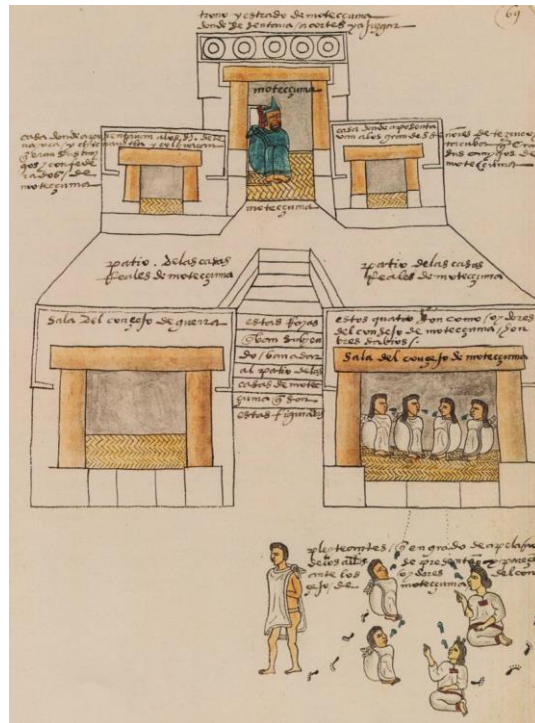 trono y estrado de moteccuma
donde se sentava a cortes y a juzgar
69
moteccuma
casa donde aposentavan a los s. de tena
yuca / y chicnauhtla y culhuacan
q eran sus ami
gos / y confede
rados / de
moteccuma
casa donde aposenta
van a los grandes se
ñores de tezcuco y
tacuba q eran
sus amigos de
moteccuma
moteccuma
patio . de las casas
Reales de moteccuma
patio de las casas
Reales de moteccuma
sala del consejo de guerra
estas Rayas
q van subien
do / van a dar
al patio de las
casas de motec
cuma q son
estas figuradas
estos quatro son como / oydores
del consejo de moteccuma / hon
bres sabios /.
sala del consejo de moteccuma
pleyteantes / q en grado de apelacion
de los
de presentan y parecen
ante los
oydores
del con
sejo / de
moteccuma